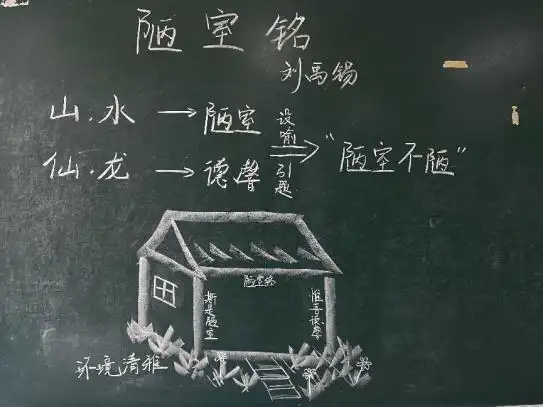 陋室铭
刘禹锡
山.水 → 陋室
仙.龙 → 德馨
设喻
引题
"陋室不陋"
陋室铭
斯是陋室
惟吾德馨
环境清雅